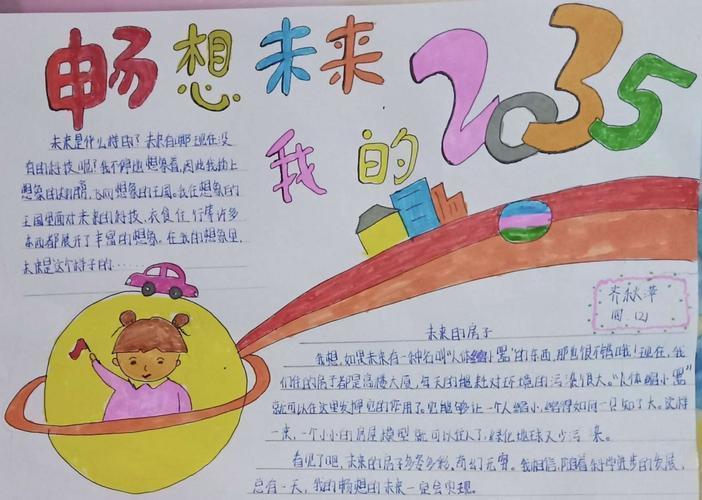 畅想未来
我的2035
未来是什么样的?未来有哪些现在没
有的科技呢?我不停地想象着,因此我插上
想象的翅膀,飞向想象的王国。我在想象的
王国里面对未来的科技、衣食住行等许多
东西都展开了丰富的想象。在我的想象里,
未来是这个样子的……
齐秋萍
四(2)
未来的房子
我想,如果未来有一种名叫“人体缩小器”的东西,那也很不错哦!现在,我
们住的房子都是高楼大厦,
对环境的污染很大。“人体缩小器”
就可以在这里发挥它的作用了。它能够让一个人缩小,缩得如同一只
大。这样
一来,一个小小的房屋模型就可以住人了,绿化地球又少污染。
看见了吧,未来的房子多姿多彩,奇幻无穷。我相信,随着科学进步的发展,
总有一天,我的畅想的未来一定会实现。